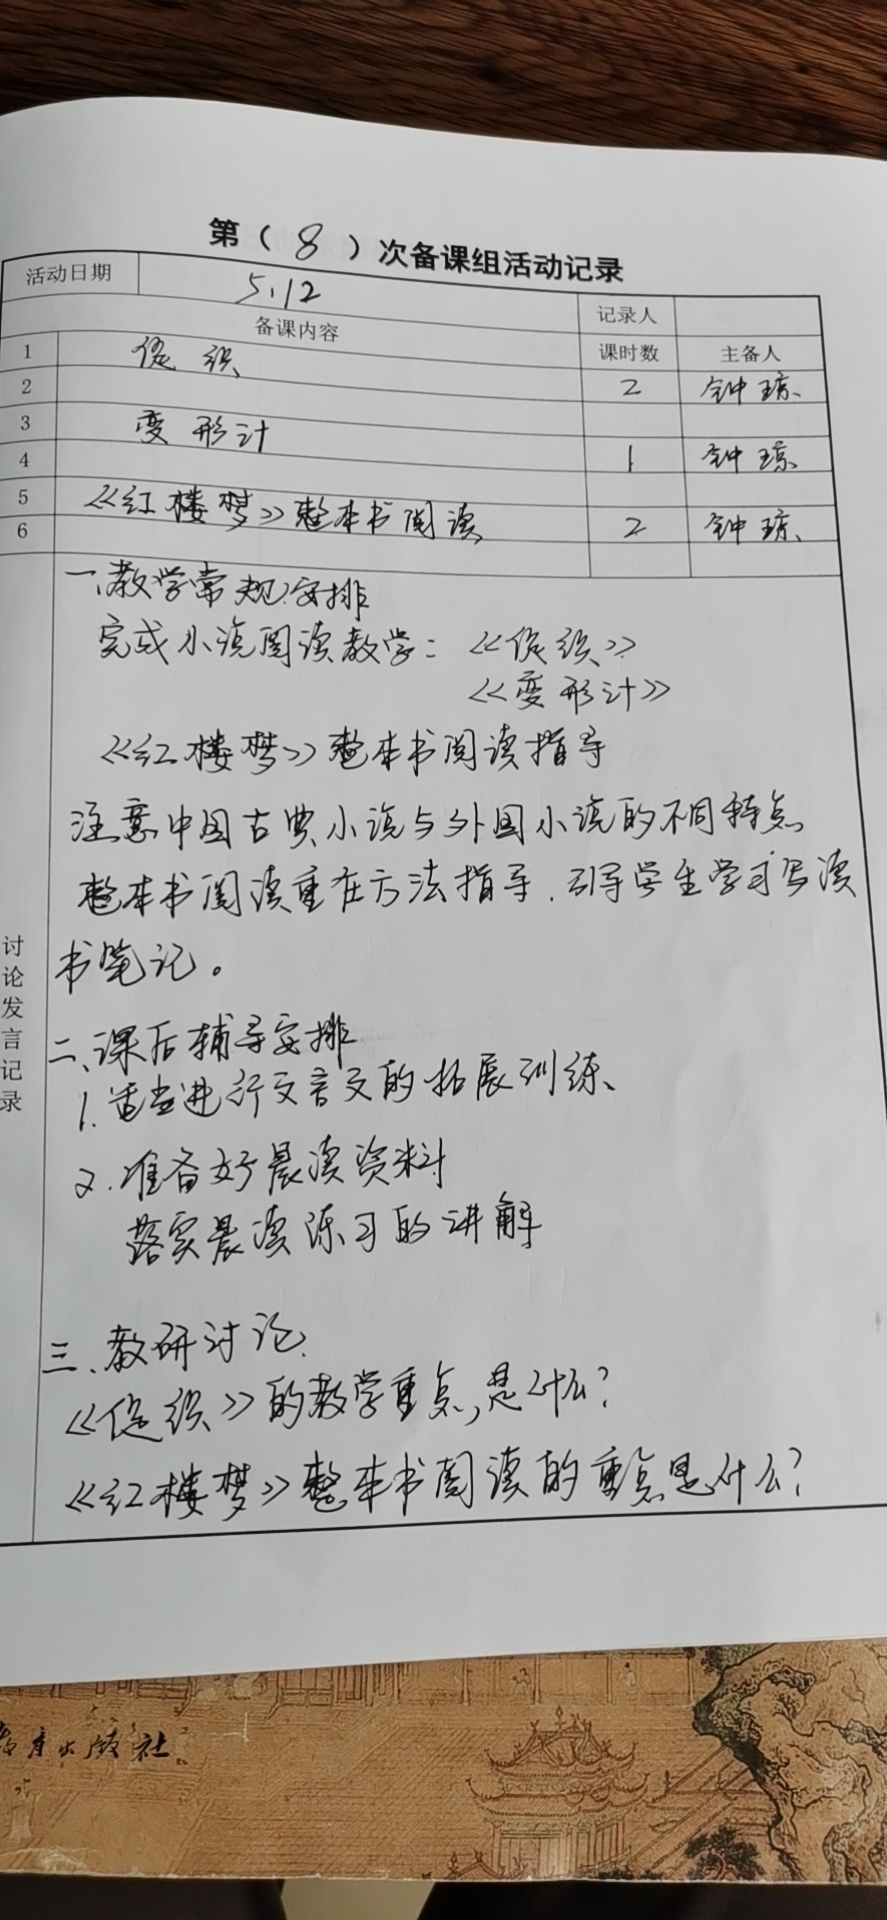 第（8）次备课组活动记录
活动日期 5.12 记录人
备课内容 课时数 主备人
1 促织
2 2 钟琼
3 变形计
4 1 钟琼
5 《红楼梦》整本书阅读
6 2 钟琼
讨论发言记录
一、教学常规安排
完成小说阅读教学：《促织》
《变形计》
《红楼梦》整本书阅读指导
注意中国古典小说与外国小说的不同特点
整本书阅读重在方法指导，引导学生学习写读
书笔记。
二、课后辅导安排
1.适当进行文言文的拓展训练、
2.准备好晨读资料
落实晨读练习的讲解
三、教研讨论
《促织》的教学重点，是什么？
《红楼梦》整本书阅读的重点是什么？
教育出版社